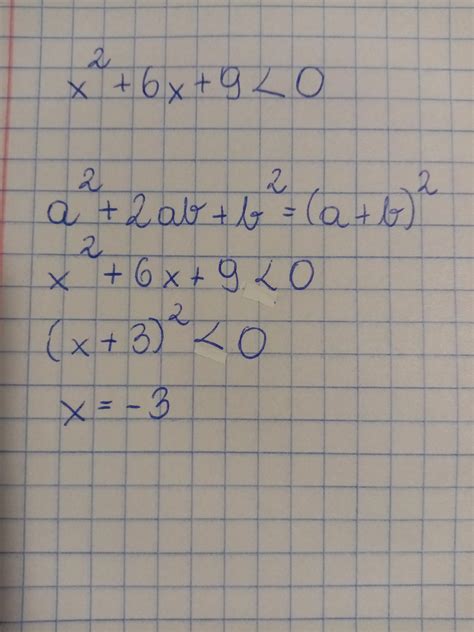 x² + 6x + 9 < 0
a² + 2ab + b² = (a + b)²
x² + 6x + 9 < 0
(x + 3)² < 0
x = -3